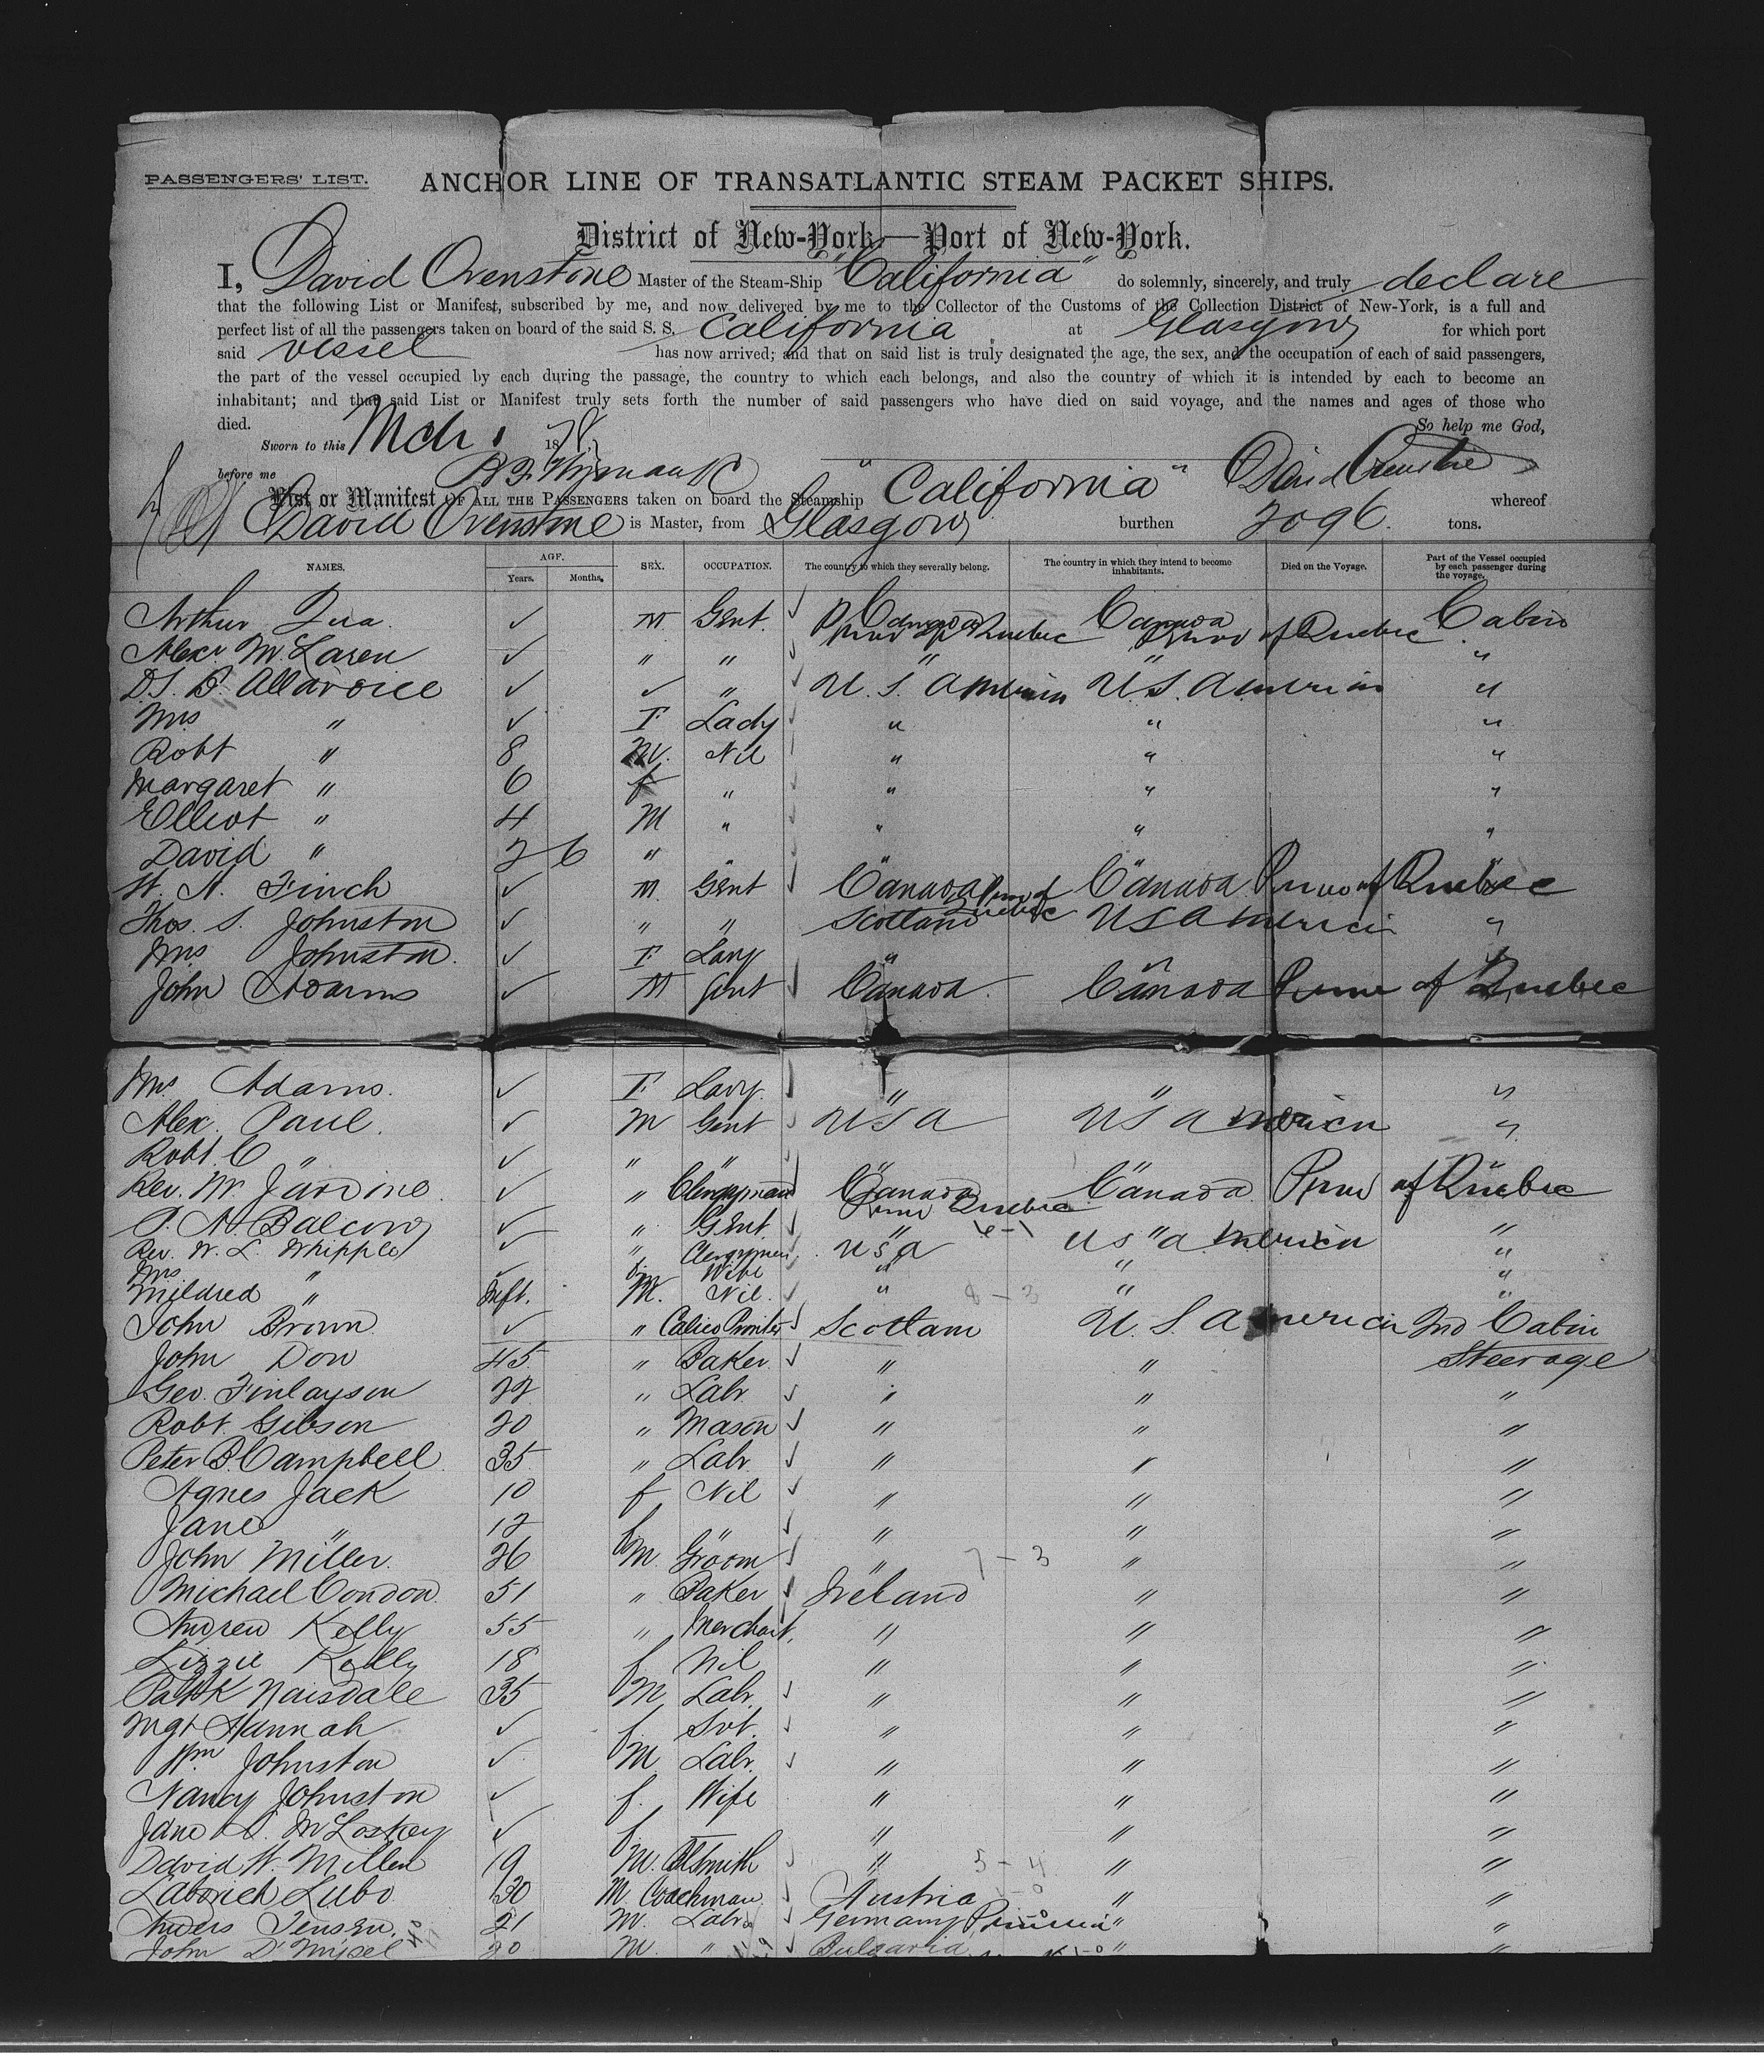 PASSENGERS' LIST. ANCHOR LINE OF TRANSATLANTIC STEAM PACKET SHIPS.
District of New-York—Port of New-York.
I, David Ovenstone Master of the Steam-Ship "California" do solemnly, sincerely, and truly declare
that the following List or Manifest, subscribed by me, and now delivered by me to the Collector of the Customs of the Collection District of New-York, is a full and
perfect list of all the passengers taken on board of the said S. S. California at Glasgow for which port
said vessel has now arrived; and that on said list is truly designated the age, the sex, and the occupation of each of said passengers,
the part of the vessel occupied by each during the passage, the country to which each belongs, and also the country of which it is intended by each to become an
inhabitant; and that said List or Manifest truly sets forth the number of said passengers who have died on said voyage, and the names and ages of those who
died. So help me God,
Sworn to this Mch 1878
before me David Ovenstone
List or Manifest OF ALL THE PASSENGERS taken on board the Steamship "California" whereof
David Ovenstone is Master, from Glasgow burthen 2096. tons.
NAMES. AGE. Years. Months. SEX. OCCUPATION. The country to which they severally belong. The country in which they intend to become inhabitants. Died on the Voyage. Part of the Vessel occupied by each passenger during the voyage.
Arthur ✓ M Gent. ✓ Canada Prov of Quebec Canada Prov of Quebec Cabin
Alexr McLaren ✓ " " ✓ " " "
D.S. B. Allardice ✓ ✓ " ✓ U.S. America U.S. America "
Mrs " ✓ F Lady ✓ " " "
Robt " 8 M. Nil " " "
Margaret " 6 f " ✓ " " "
Elliot " 4 M " ✓ " " "
David " 2 6 " " ✓ " " "
W. N. Finch ✓ M Gent ✓ Canada Prov of Quebec Canada Prov of Quebec "
Thos. S. Johnston ✓ " " Scotland U S America "
Mrs Johnston. ✓ F Lady " " "
John Adams ✓ M Gent ✓ Canada. Canada Prov of Quebec "
Mrs Adams. ✓ F Lady. ✓ " " "
Alex. Paul. ✓ M Gent ✓ U S A U S America "
Robt. C " ✓ " " ✓ " " "
Rev. W. Jardine. ✓ " Clergyman Canada Prov Quebec Canada Prov of Quebec
P. A. Balcom ✓ " Gent. ✓ " " "
Rev. W. L. Whipple ✓ " Clergyman ✓ U S A U S America "
Mrs " ✓ f Wife " " "
Mildred " Inft. M. Nil. ✓ " " "
John Brown. ✓ " Calico Printer Scotland U. S. America 2nd Cabin
John Dow 45 " Baker ✓ " " Steerage
Geo. Finlayson 22 " Labr ✓ " " "
Robt Gibson 20 " Mason ✓ " " "
Peter B. Campbell. 35 " Labr ✓ " " "
Agnes Jack 10 f Nil ✓ " " "
Jane " 12 f ✓ " " "
John Miller. 26 M. Groom ✓ " 7–3 " "
Michael Condon. 51 " Baker ✓ Ireland " "
Andrew Kelly 55 " Merchant, " " "
Lizzie Kelly 18 f Nil " " "
Patk Naisdale 35 M Labr. ✓ " " "
Mgt Hannah ✓ f. Svt. ✓ " " "
Wm Johnston ✓ M Labr. ✓ " " "
Nancy Johnston ✓ f. Wife " " "
Jane McLoskey ✓ f. — " " "
David W. Millen 19 M. Blksmith ✓ " 5–4 " "
Lubo 30 M. Coachman ✓ Austria " "
Anders Jensen. 21 M. Labr ✓ Germany Prussia " "
John 20 M " ✓ Bulgaria " "